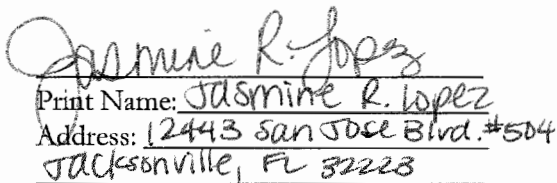 Jasmine R. Lopez
Print Name: Jasmine R. Lopez
Address: 12443 San Jose Blvd. #504
Jacksonville, FL 32223